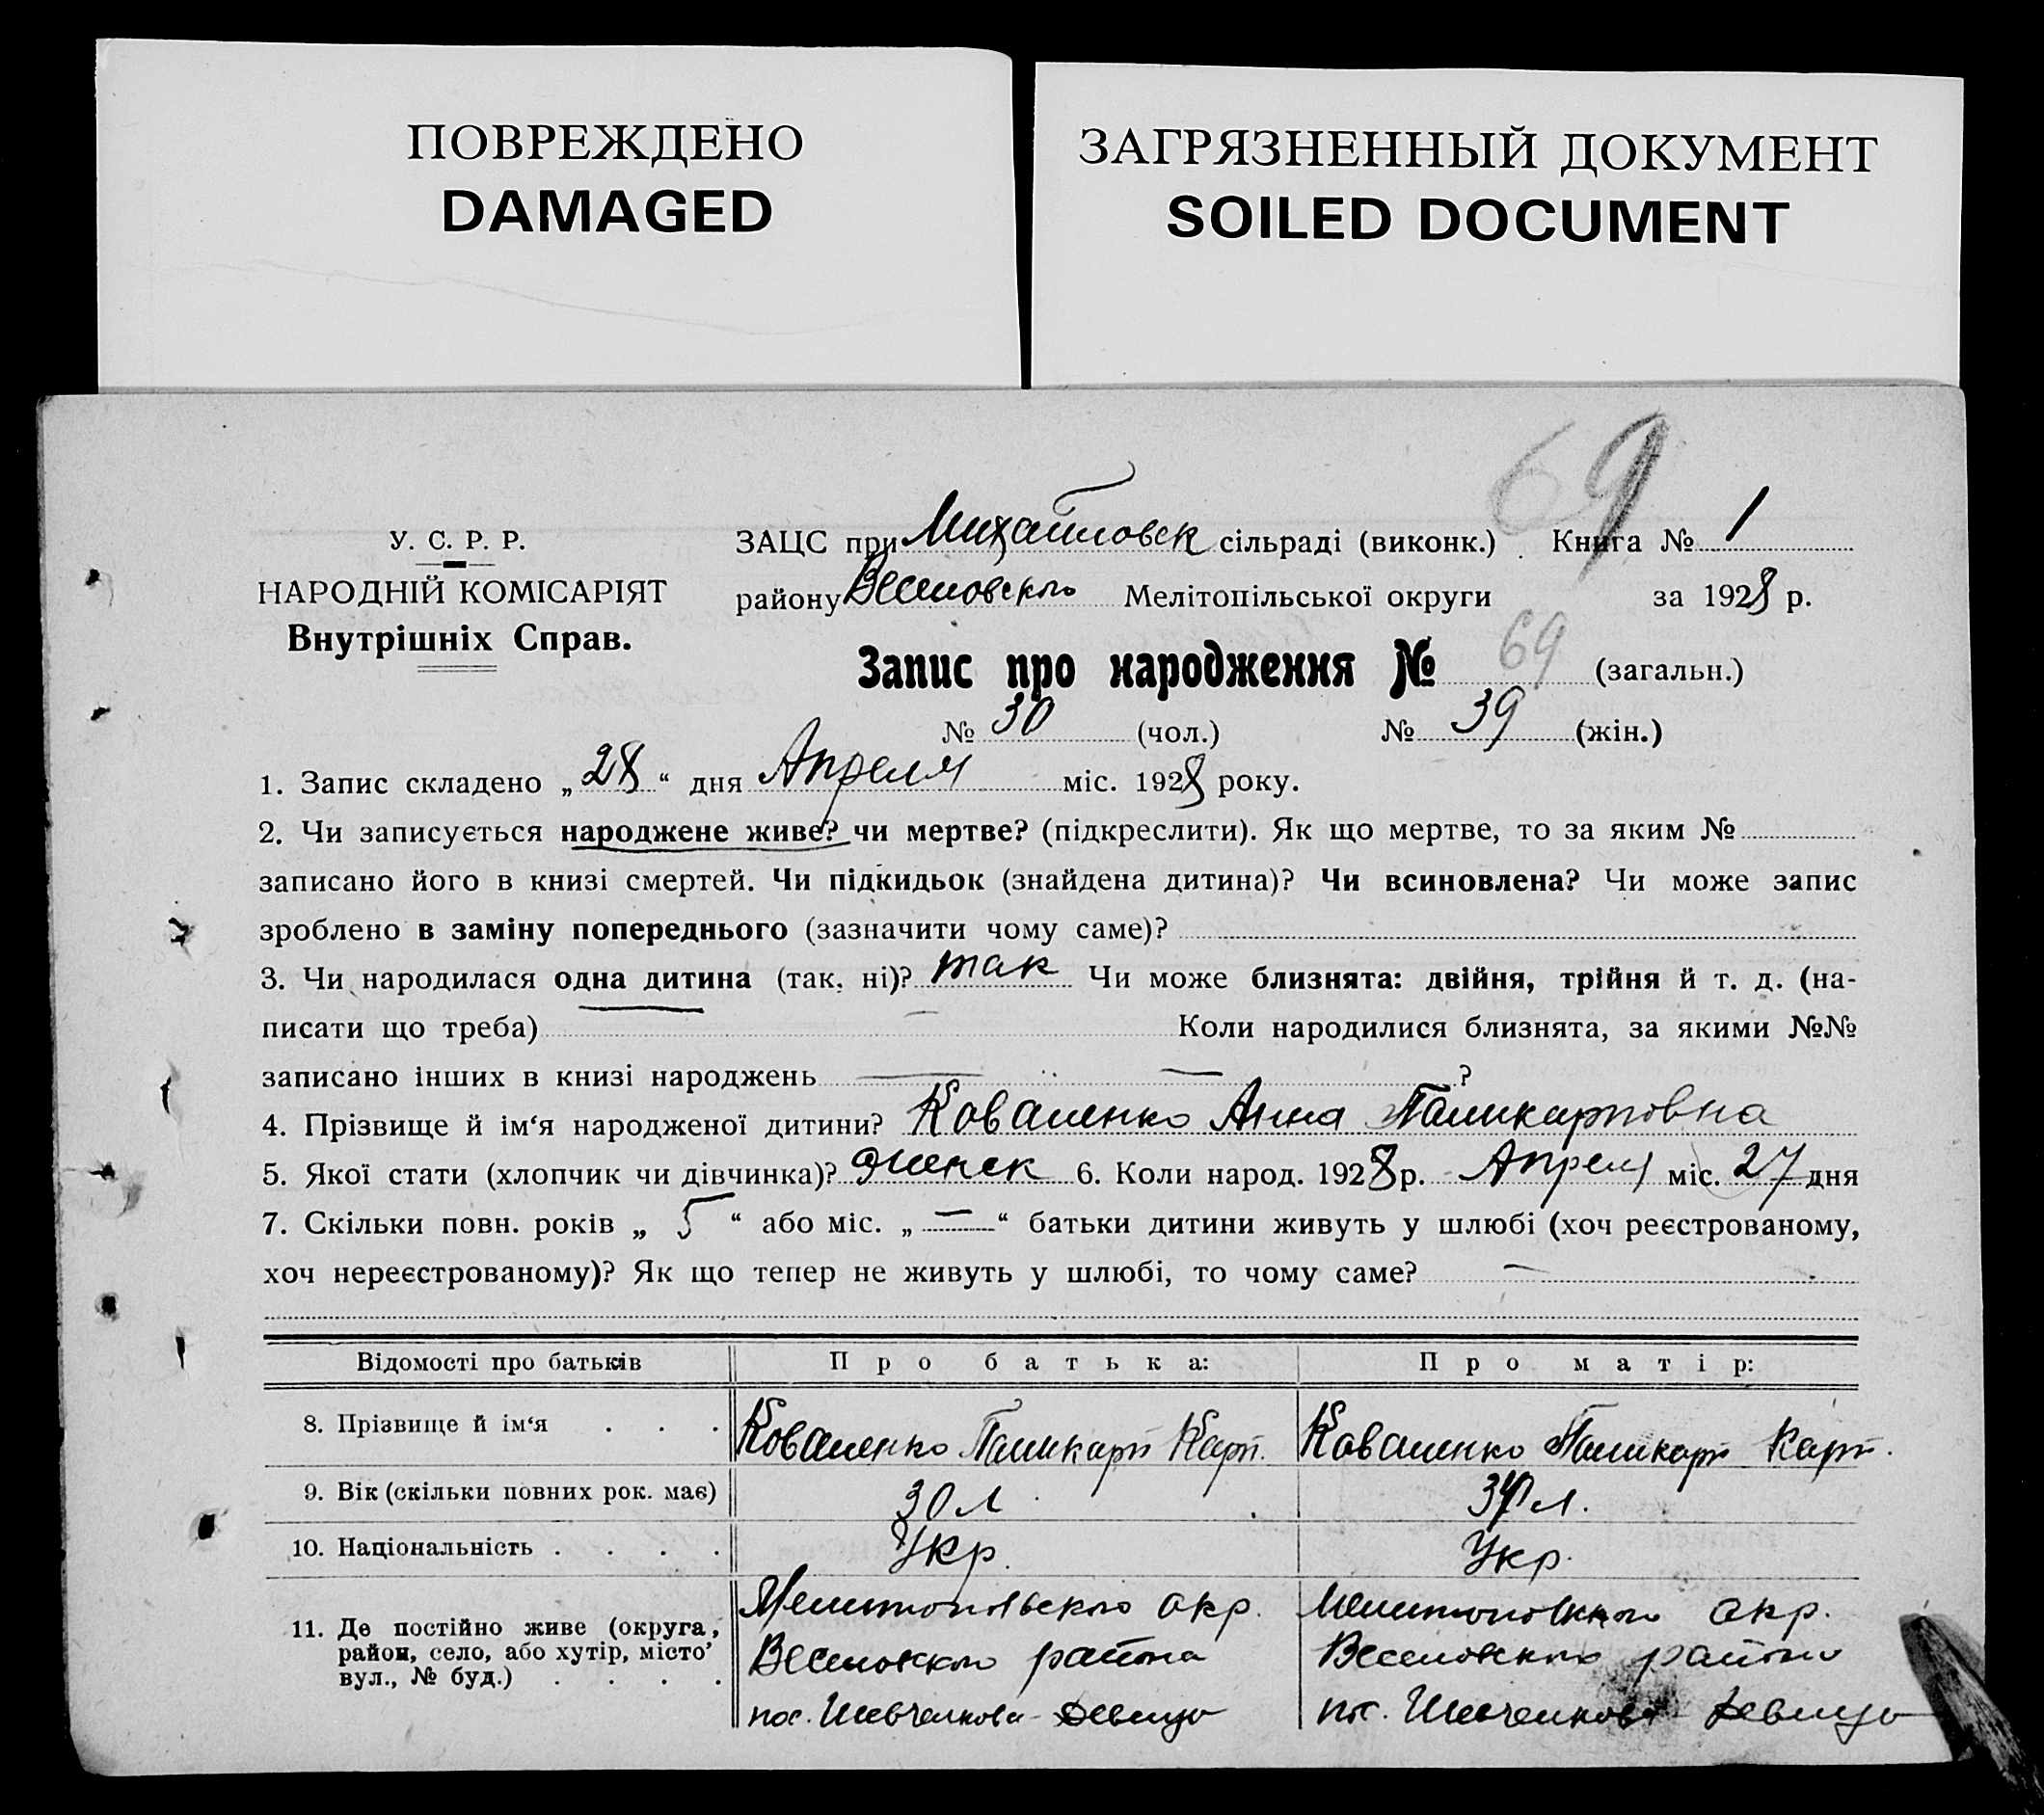 ПОВРЕЖДЕНО
DAMAGED
ЗАГРЯЗНЕННЫЙ ДОКУМЕНТ
SOILED DOCUMENT
69
У. С. Р. Р.
НАРОДНІЙ КОМІСАРІЯТ
Внутрішніх Справ.
ЗАЦС при Михайловск сільраді (виконк.) Книга № 1
району Веселовского Мелітопільської округи за 1928 р.
Запис про народження № 69 (загальн.)
№ 30 (чол.) № 39 (жін.)
1. Запис складено „28“ дня Апреля міс. 1928 року.
2. Чи записується народжене живе? чи мертве? (підкреслити). Як що мертве, то за яким №
записано його в книзі смертей. Чи підкидьок (знайдена дитина)? Чи всиновлена? Чи може запис
зроблено в заміну попереднього (зазначити чому саме)?
3. Чи народилася одна дитина (так, ні)? так Чи може близнята: двійня, трійня й т. д. (на-
писати що треба) — Коли народилися близнята, за якими №№
записано інших в книзі народжень — — ?
4. Прізвище й ім‘я народженої дитини? Коваленко Анна Паликарповна
5. Якої стати (хлопчик чи дівчинка)? женск 6. Коли народ. 1928 р. Апреля міс. 27 дня
7. Скільки повн. років „ 5 “ або міс. „ — “ батьки дитини живуть у шлюбі (хоч реєстрованому,
хоч нереєстрованому)? Як що тепер не живуть у шлюбі, то чому саме? —
Відомості про батьків Про батька: Про матір:
8. Прізвище й ім‘я . . . Коваленко Паликарп Карп. Коваленко Паликарп Карп.
9. Вік (скільки повних рок. має) 30 л л.
10. Національність . . . . Укр. Укр.
11. Де постійно живе (округа, район, село, або хутір, місто, вул., № буд.) . . . .
Мелитопольского окр. Мелитопольского окр.
Веселовского района Веселовского района
пос. Шевченкова пос. Шевченкова